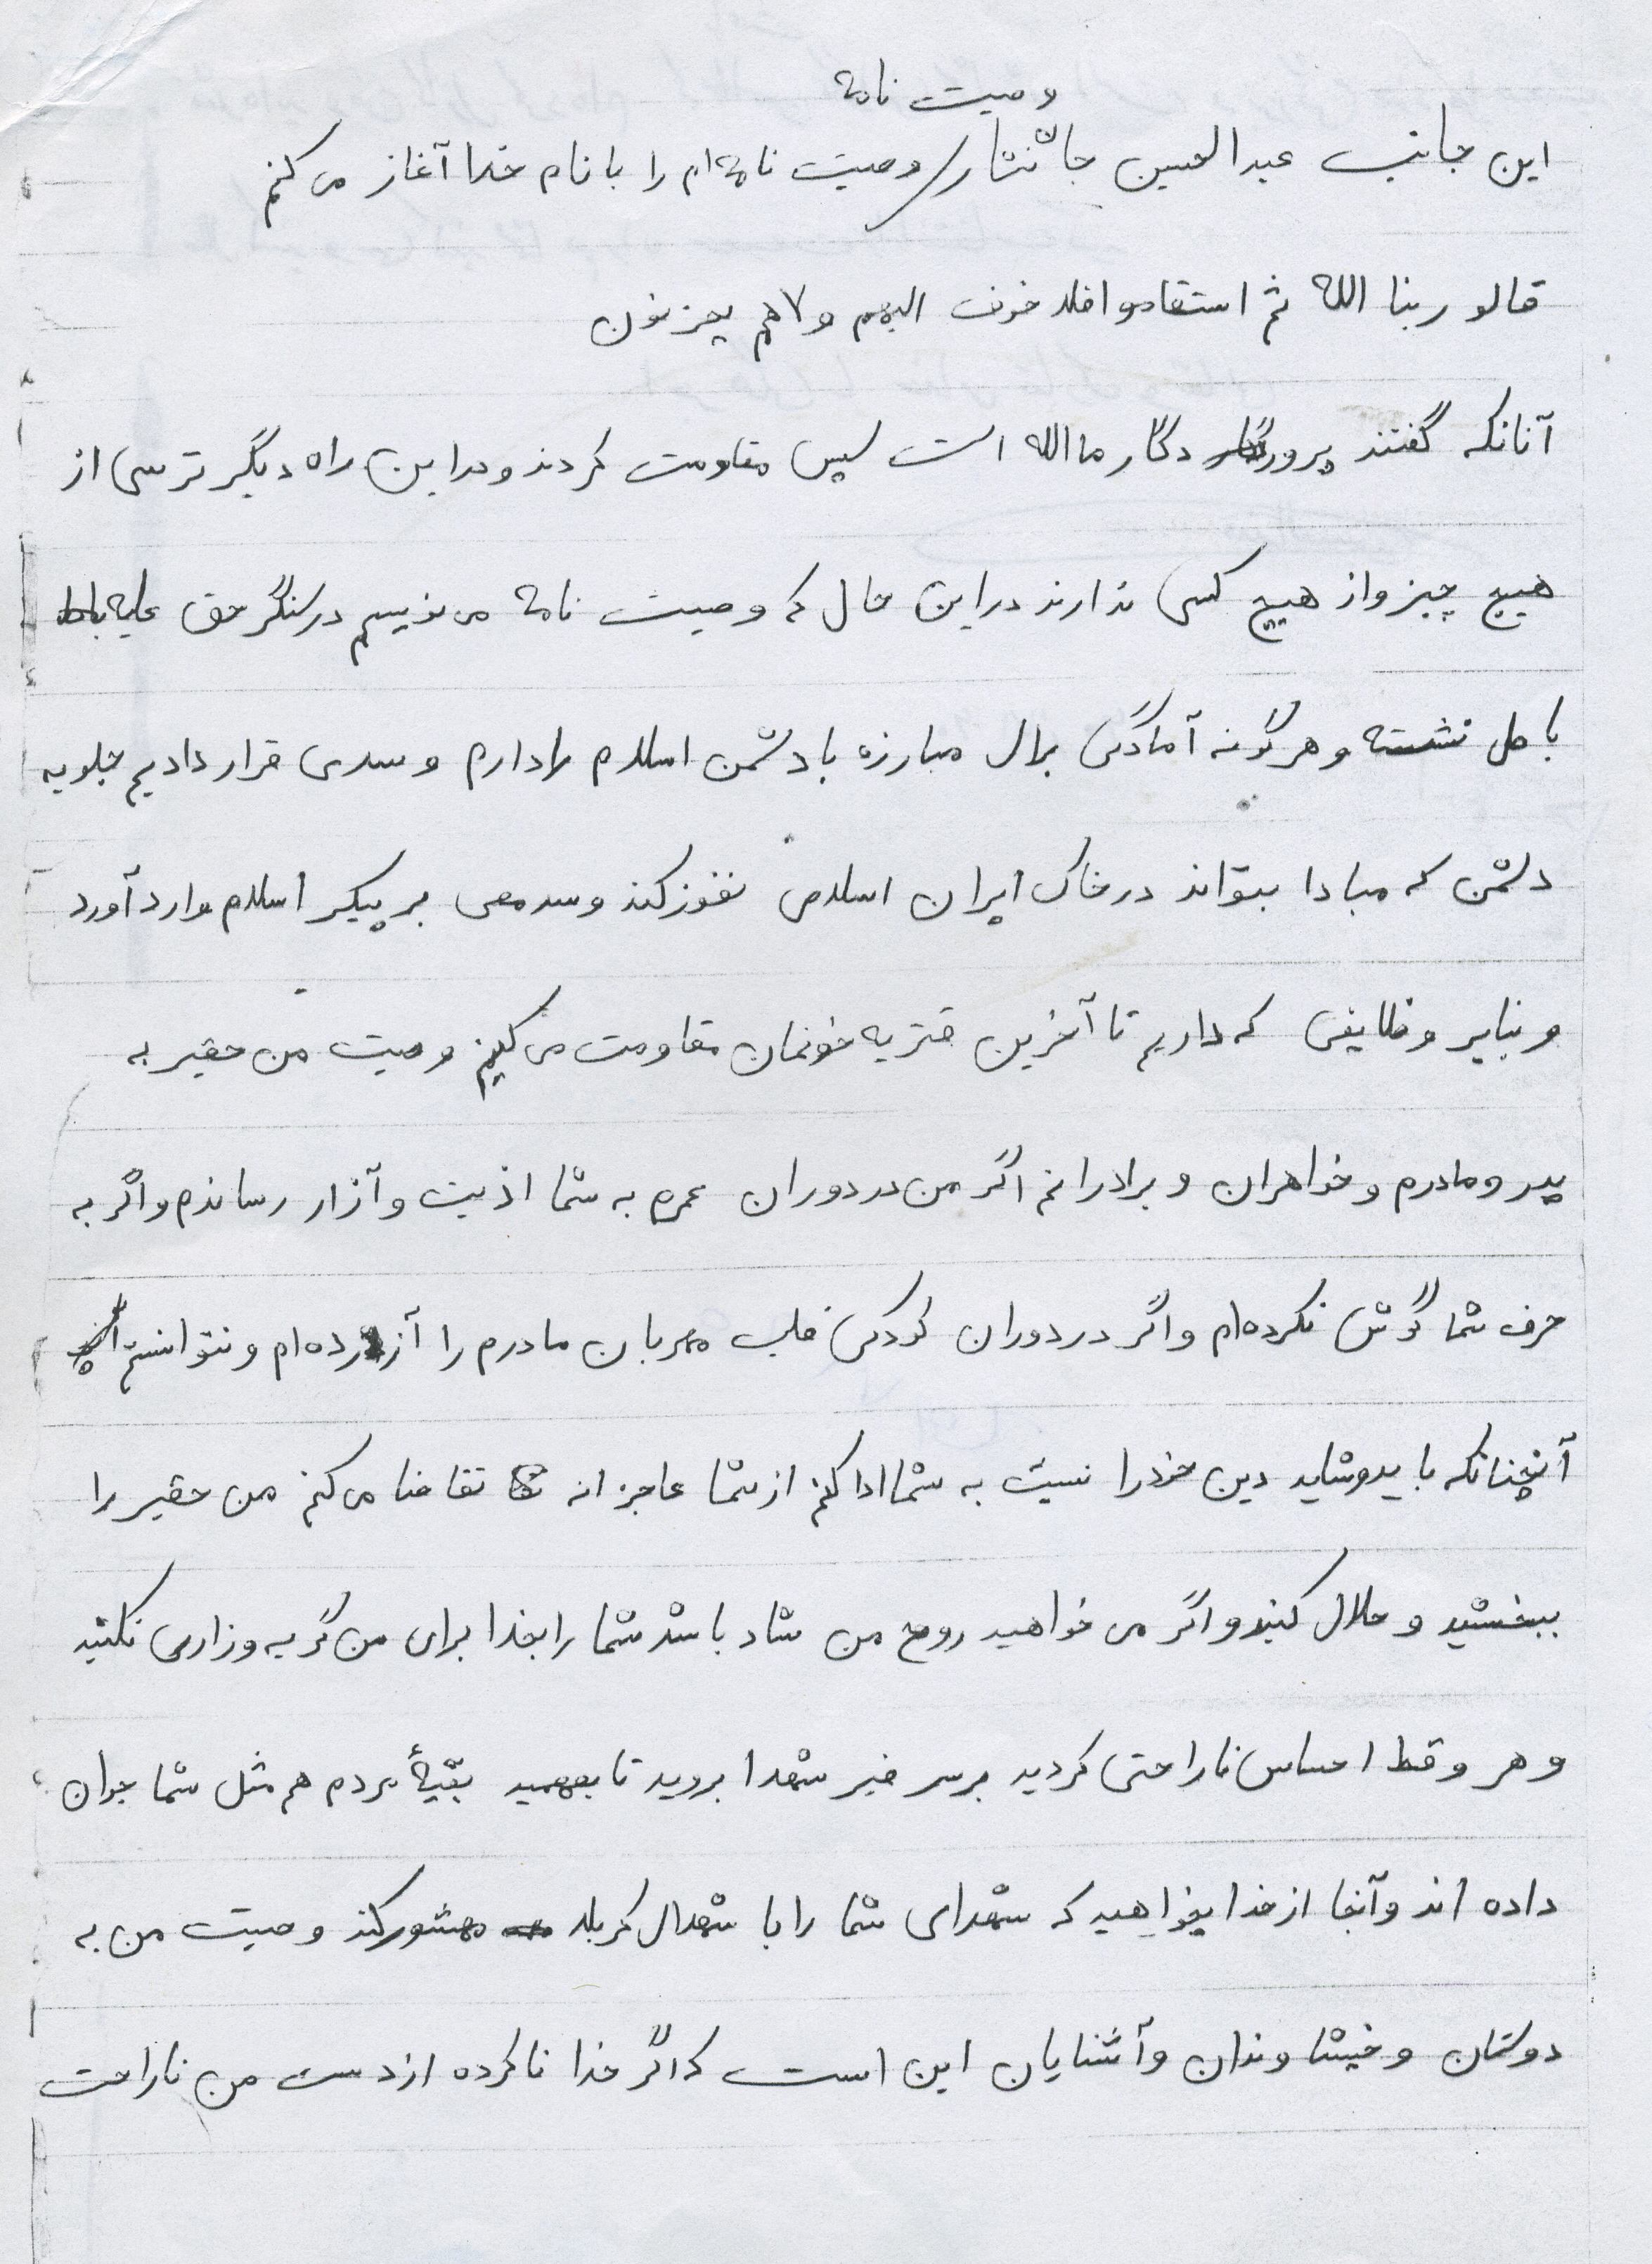 وصیت نامه
این جانب عبدالحسین جانثار وصیت نامه‌ام را با نام خدا آغاز می کنم
قالو ربنا الله ثم استقاموا فلا خوف الیهم ولاهم یحزنون
آنانکه گفتند پروردگار ما الله است سپس مقاومت کردند و در این راه دیگر ترسی از
هیچ چیز و از هیچ کسی ندارند در این حال که وصیت نامه می نویسم در سنگر حق علیه
باطل نشسته و هرگونه آمادگی برای مبارزه با دشمن اسلام را دارم و سدی قرار دادیم جلویه
دشمن که مبادا بتواند در خاک ایران اسلامی نفوز کند و سدمه‌ی بر پیکر اسلام وارد آورد
و بنابر وظایفی که داریم تا آخرین قتریه خونمان مقاومت می کنیم وصیت من حقیر به
پدر و مادرم و خواهران و برادرانم اگر من در دوران عمرم به شما اذیت و آزار رساندم و اگر به
حرف شما گوش نکرده‌ام و اگر در دوران کودکی قلب مهربان مادرم را آزرده‌ام و نتوانستم
آنچنانکه باید و شاید دین خود را نسبت به شما ادا کنم از شما عاجزانه تقاضا می کنم من حقیر را
ببخشید و حلال کنید و اگر می خواهید روح من شاد باشد شما را بخدا برای من گریه و زاری نکنید
و هر وقط احساس ناراحتی کردید بر سر قبر شهدا بروید تا بفهمید بقیهٔ مردم هم مثل شما جوان
داده اند و آنجا از خدا بخواهید که شهدای شما را با شهدای کربلا مهشور کند وصیت من به
دوستان و خیشاوندان و آشنایان این است که اگر خدا ناکرده از دست من ناراحت